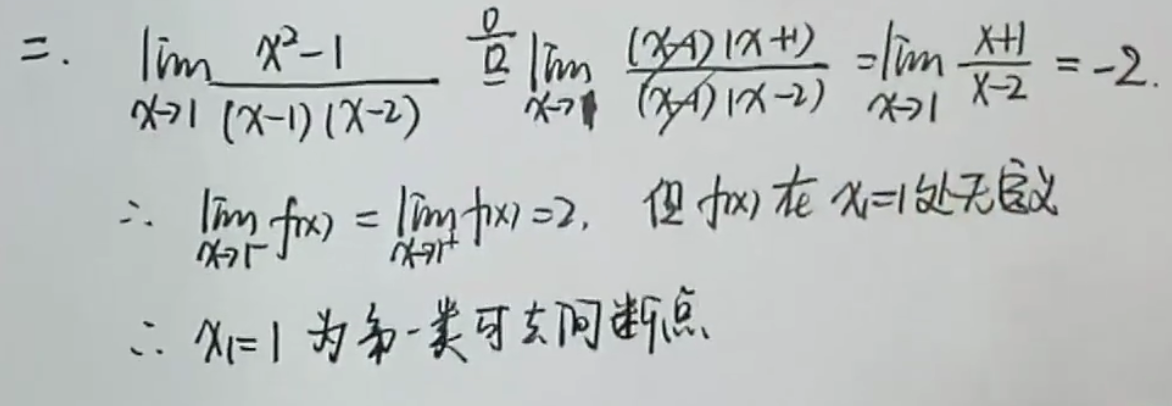 二. lim_{x→1} \frac{x²-1}{(x-1)(x-2)} \overset{\frac{0}{0}}{=} lim_{x→1} \frac{(x-1)(x+1)}{(x-1)(x-2)} = lim_{x→1} \frac{x+1}{x-2} = -2.
∴ lim_{x→1⁻} f(x) = lim_{x→1⁺} f(x) = 2, 但 f(x) 在 x₁=1处无定义
∴ x₁=1 为第一类可去间断点